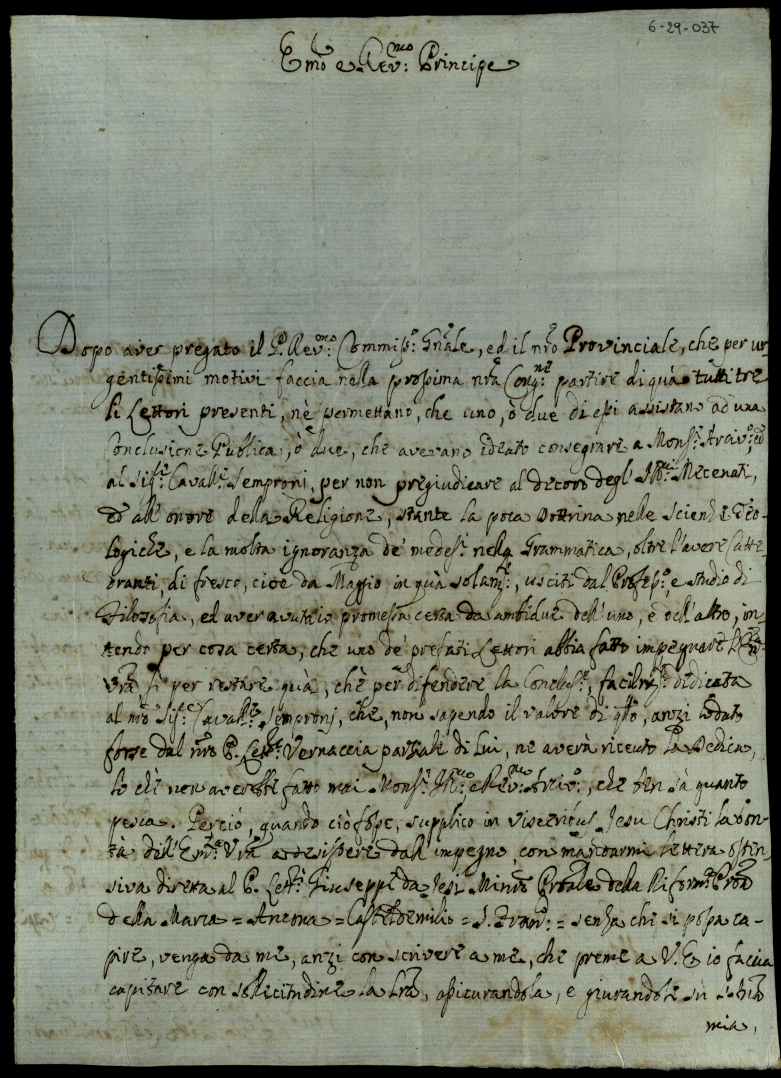 6-29-037
Emo e Rev:mo Principe
Dopo aver pregato il P. Rev:mo Commiss:o Gnale, ed il nro Provinciale, che per ur-
gentissimi motivi faccia nella prossima nra Cong:ne partire di quà tutti tre
li Lettori presenti, nè permettano, che uno, ò due di essi assistano ad una
Conclusione Publica, ò due, che avevano ideato consegrare a Mons:r Arciv:o, ed
al Sig:r Cavall:r Semproni, per non pregiudicare al decoro degl' Ill:mi Mecenati,
ed all' onore della Religione, stante la poca Dottrina nelle scienze Teo-
logiche, e la molta ignoranza de' medes:i nella Grammatica, oltre l'avere
di fresco, cioè da Maggio in quà solam:e, usciti dal Profess:o, e studio di
Filosofia, ed aver avut' io promessa certa da ambidue dell' uno, e dell' altro, in-
tendo per cosa certa, che uno de' prefati Lettori abbia fatto impegnare
Vra sì per restare quà, chè per difendere la Conclus:e, facilm:e dedicata
al nro Sig:r Cavall:r Sempronj, che, non sapendo il valore di qsto, anzi lodato
forse dal nro P. Lett:e Vernaccia parziale di Lui, ne averà riceuto la Dedica,
lo chè non averebbe fatto mai Mons:r Ill:mo, e Rev:mo Arciv:o, che ben sà quanto
pesca. Perciò, quando ciò fosse, supplico in visceribus Jesu Christi la bon-
tà dell' Em:za Vra a desistere dall' impegno, con mandarmi lettera osten-
siva diretta al P. Lett:e Giuseppe da Jesi Minro Prole della Riform:a Proa
della Marca = Ancona = Casteldemilio = S. = senza chi si possa ca-
pire, venga da me, anzi con scrivere a me, che preme a V. E. io faccia
capitare con sollecitudine la Lra, assicurandola, e giurandole sù
mia,